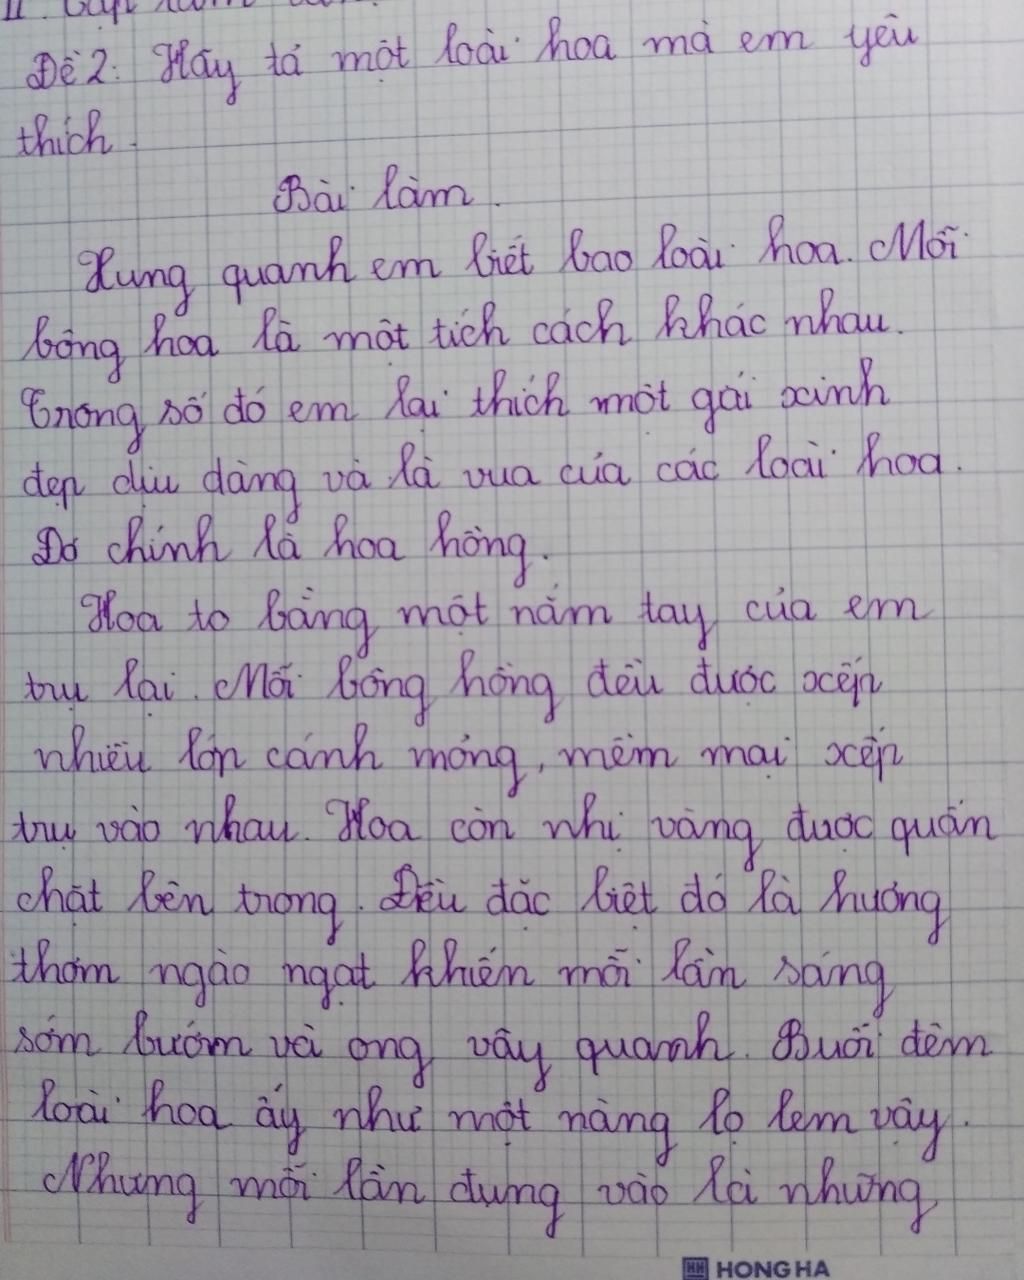 Đề 2: Hãy tả một loài hoa mà em yêu
thích.
Bài làm.
Xung quanh em biết bao loài hoa. Mỗi
bông hoa là một tích cách khác nhau.
Trong số đó em lại thích một gái xinh
đẹp dịu dàng và là vua của các loài hoa.
Đó chính là hoa hồng.
Hoa to bằng một nắm tay của em
trụ lại. Mỗi bông hồng đều được xếp
nhiều lớp cánh mỏng, mềm mại xếp
trụ vào nhau. Hoa còn nhị vàng được quấn
chặt bên trong. Đều đặc biệt đó là hương
thơm ngào ngạt khiến mỗi lần sáng
sớm bướm và ong vây quanh. Buổi đêm
loài hoa ấy như một nàng lọ lem vậy.
Nhưng mỗi lần đụng vào là những
HONG HA